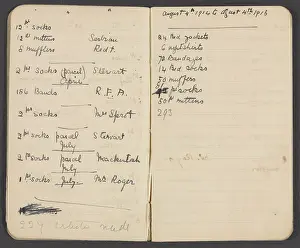 12 Pr socks
12 Pr mittens
8 mufflers Red +.
2 Pr socks (parcel) Stewart
184 Bands R.F.A.
2 Pr socks Mrs Sprot
2 Pr socks parcel Stewart
July
2 Pr socks parcel Mackintosh
July
1 Pr socks July. Mr Roger
224 articles made
August 4th 1914 to August 4th 1915
24 Bed jackets
6 nightshirts
72 Bandages
14 Bed socks
50 mufflers
Pr socks
50 Pr mittens
293